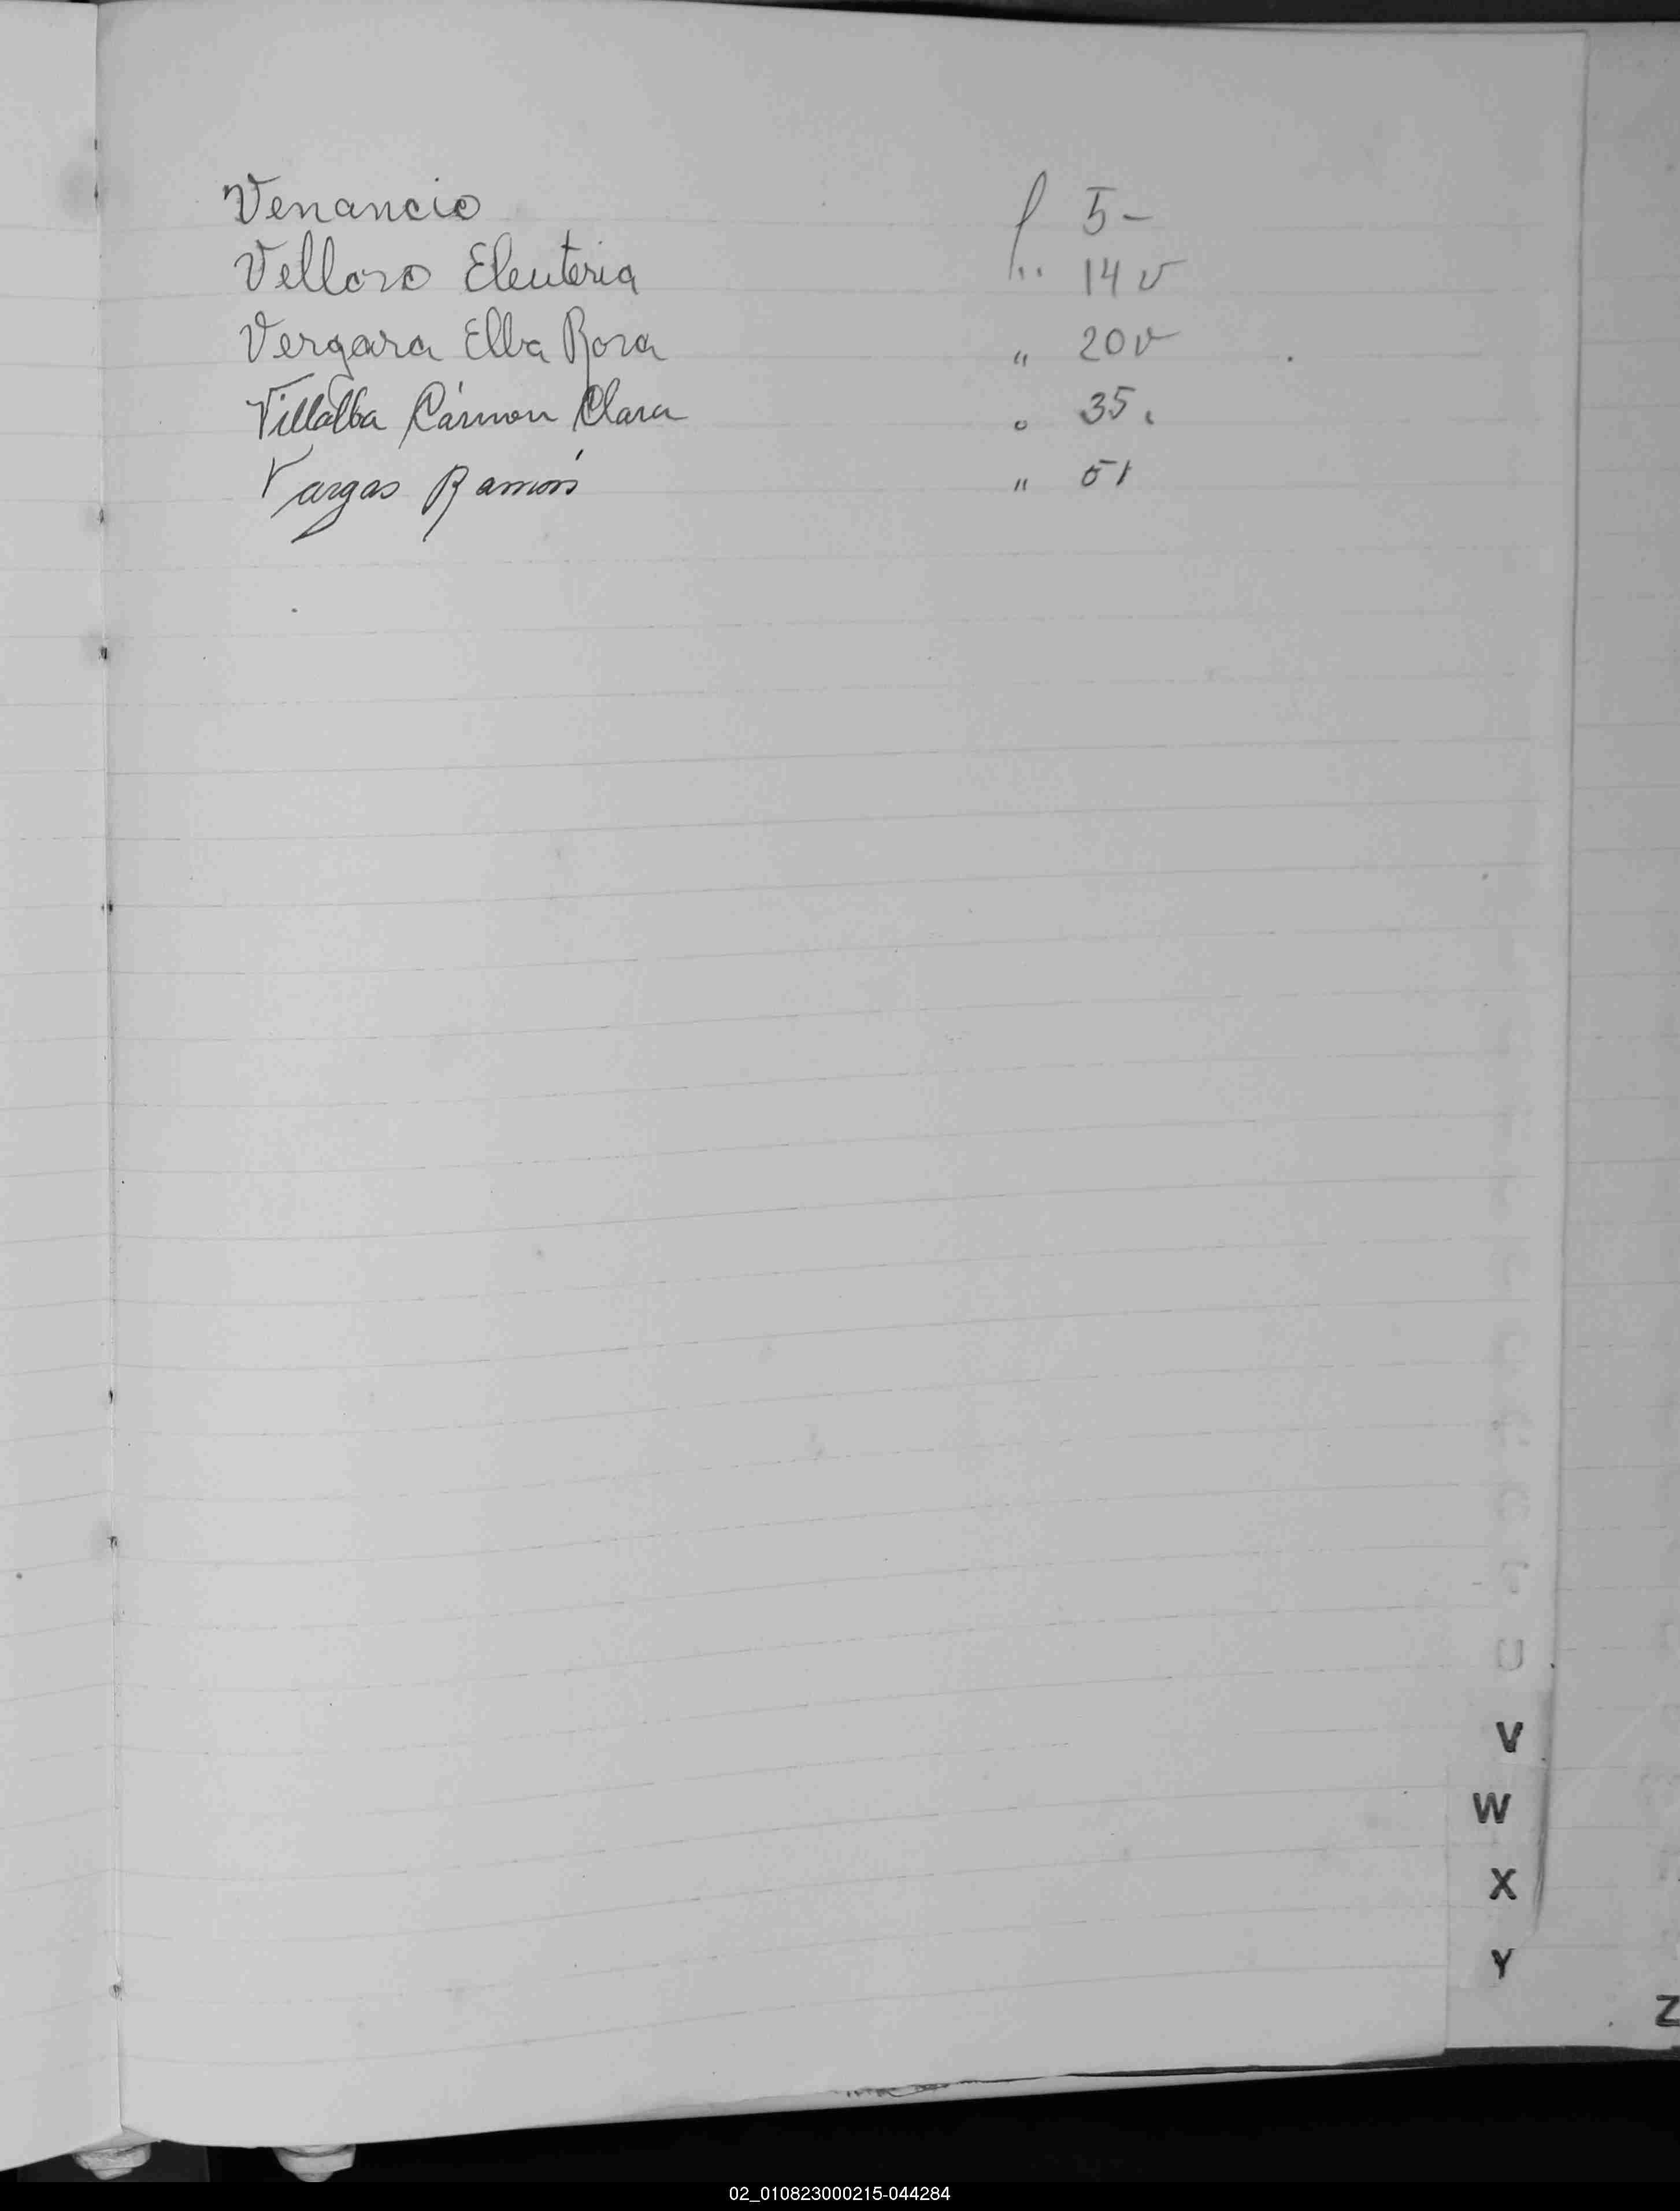 Venancio f 5-
Velloso Eleuteria " 14 v
Vergara Elba Rosa " 20 v
Villalba Cármen Clara " 35.
Vargas Ramón " 51
U
V
W
X
Y
Z
02_010823000215-044284